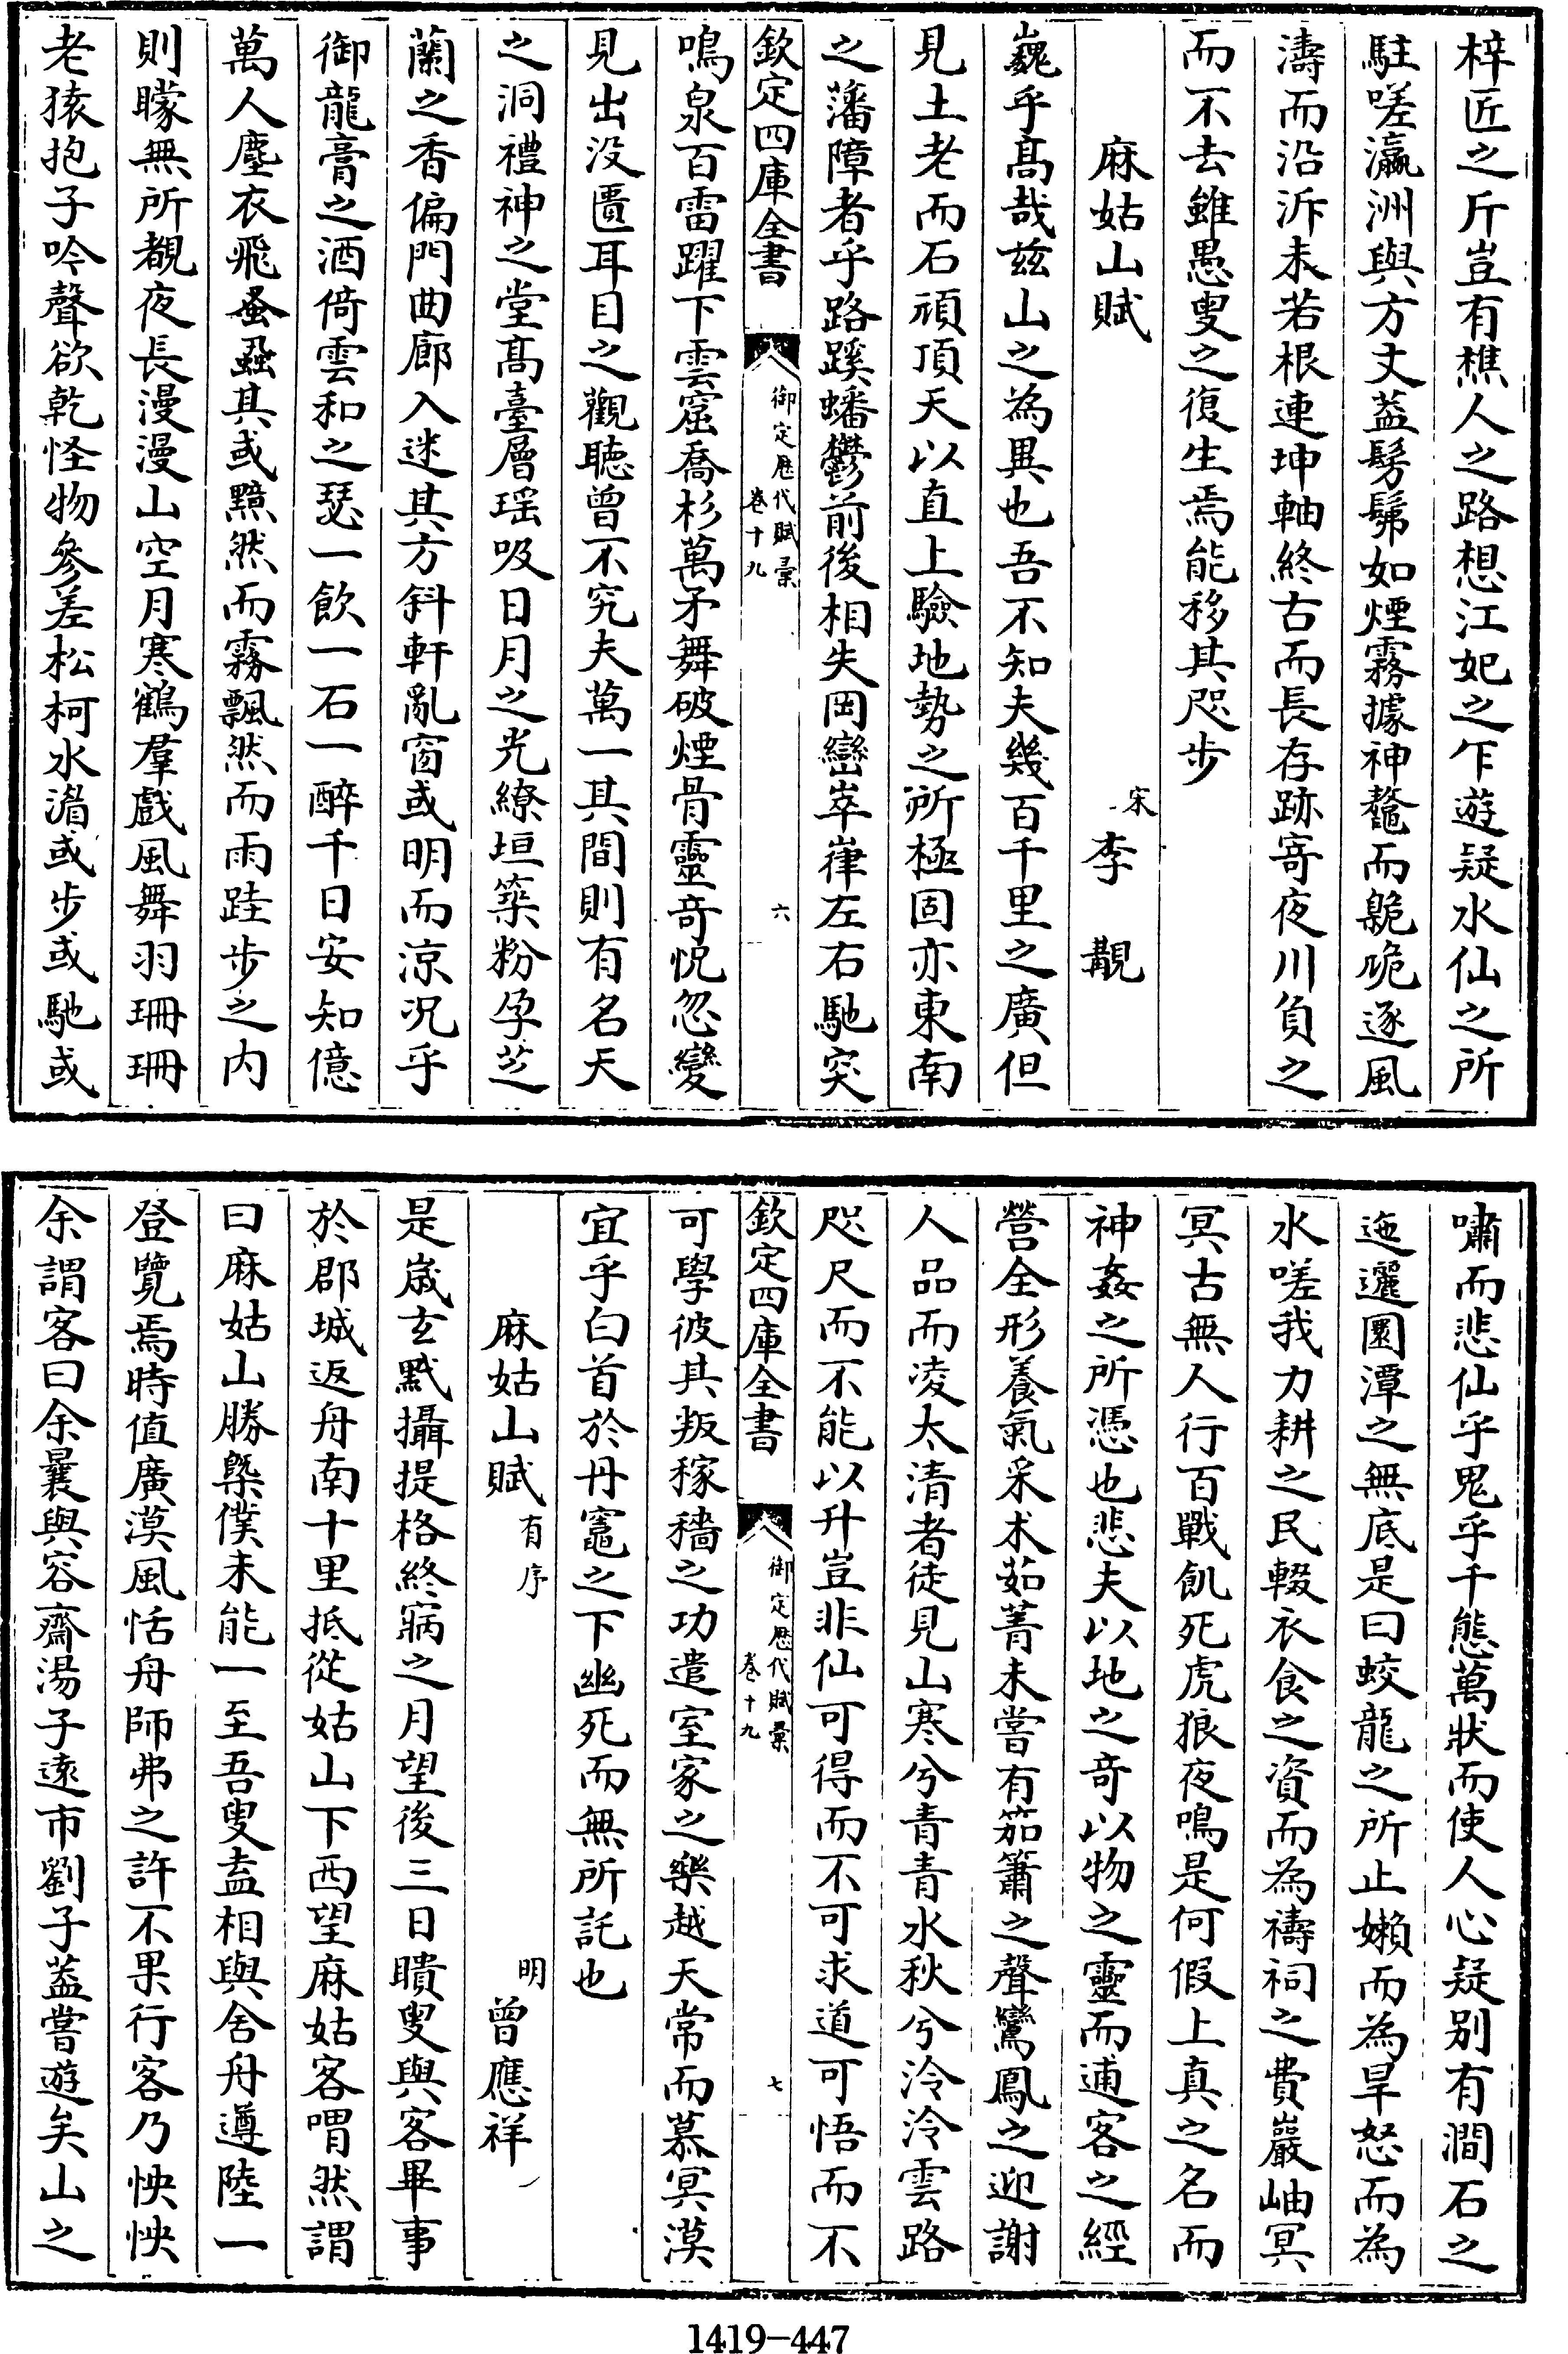 梓匠之斤豈有樵人之路想江妃之乍遊疑水仙之所
駐嗟瀛洲與方丈葢髣髴如煙霧據神鼇而臲卼逐風
濤而沿泝未若根連坤軸終古而長存跡寄夜川負之
而不去雖愚叟之復生焉能移其咫步
麻姑山賦 宋 李覯
巍乎髙哉兹山之為異也吾不知夫幾百千里之廣但
見土老而石頑頂天以直上驗地勢之所極固亦東南
之藩障者乎路蹊蟠鬱前後相失岡巒崒嵂左右馳突
欽定四庫全書 御定歴代賦彙 卷十九 六
鳴泉百雷躍下雲窟喬杉萬矛舞破煙骨靈奇怳忽變
見出没匱耳目之觀聽曾不究夫萬一其間則有名天
之洞禮神之堂髙臺層瑶吸日月之光繚垣築粉孕芝
蘭之香偏門曲廊入迷其方斜軒亂窗或明而涼况乎
御龍膏之酒倚雲和之瑟一飲一石一醉千日安知億
萬人塵衣飛蚤蝨其或黯然而霧飄然而雨跬步之内
則矇無所覩夜長漫漫山空月寒鶴羣戲風舞羽珊珊
老猿抱子吟聲欲乾怪物參差松柯水湄或步或馳或
嘯而悲仙乎鬼乎千態萬狀而使人心疑别有澗石之
迤邐圜潭之無底是曰蛟龍之所止嬾而為旱怒而為
水嗟我力耕之民輟衣食之資而為禱祠之費巖岫冥
冥古無人行百戰飢死虎狼夜鳴是何假上真之名而
神姦之所憑也悲夫以地之奇以物之靈而逋客之經
營全形養氣采术茹菁未嘗有笳簫之聲鸞鳳之迎謝
人品而凌太清者徒見山寒兮青青水秋兮泠泠雲路
咫尺而不能以升豈非仙可得而不可求道可悟而不
欽定四庫全書 御定歴代賦彙 卷十九 七
可學彼其叛稼穡之功遣室家之樂越天常而慕冥漠
宜乎白首於丹竈之下幽死而無所託也
麻姑山賦 有序 明 曾應祥
是嵗玄黓攝提格終寎之月望後三日瞶叟與客畢事
於郡城返舟南十里抵從姑山下西望麻姑客喟然謂
曰麻姑山勝槩僕未能一至吾叟盍相與舍舟遵陸一
登覽焉時值廣漠風恬舟師弗之許不果行客乃怏怏
余謂客曰余曩與容齋湯子遠市劉子葢嘗遊矣山之
1419-447